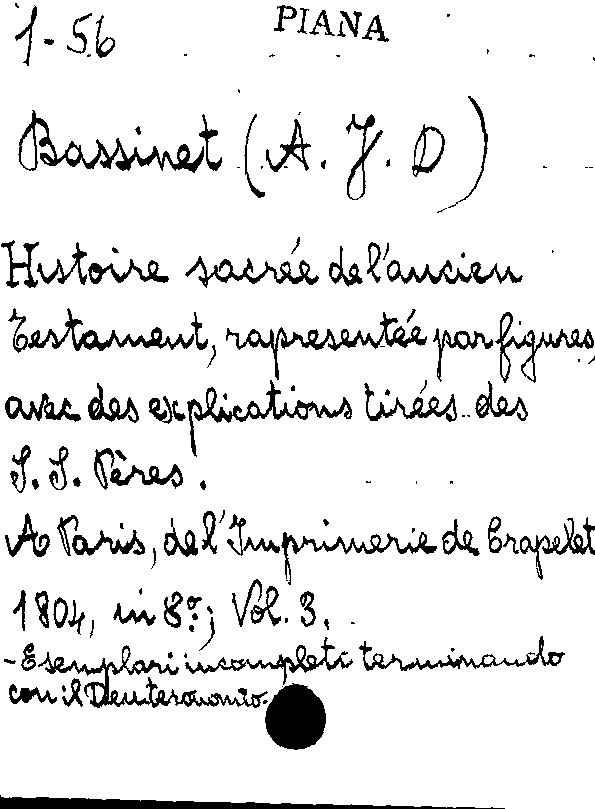 1-56 PIANA
Bassinet (A. J. D)
Histoire sacrée de l'ancien
Testament, rapresentée par figures,
avec des explications tirées des
S. S. Pères.
A Paris, de l'Imprimerie de Crapelet
1804, in 8º; Vol. 3.
- Esemplari incompleti terminando
con il Deuteronomio.